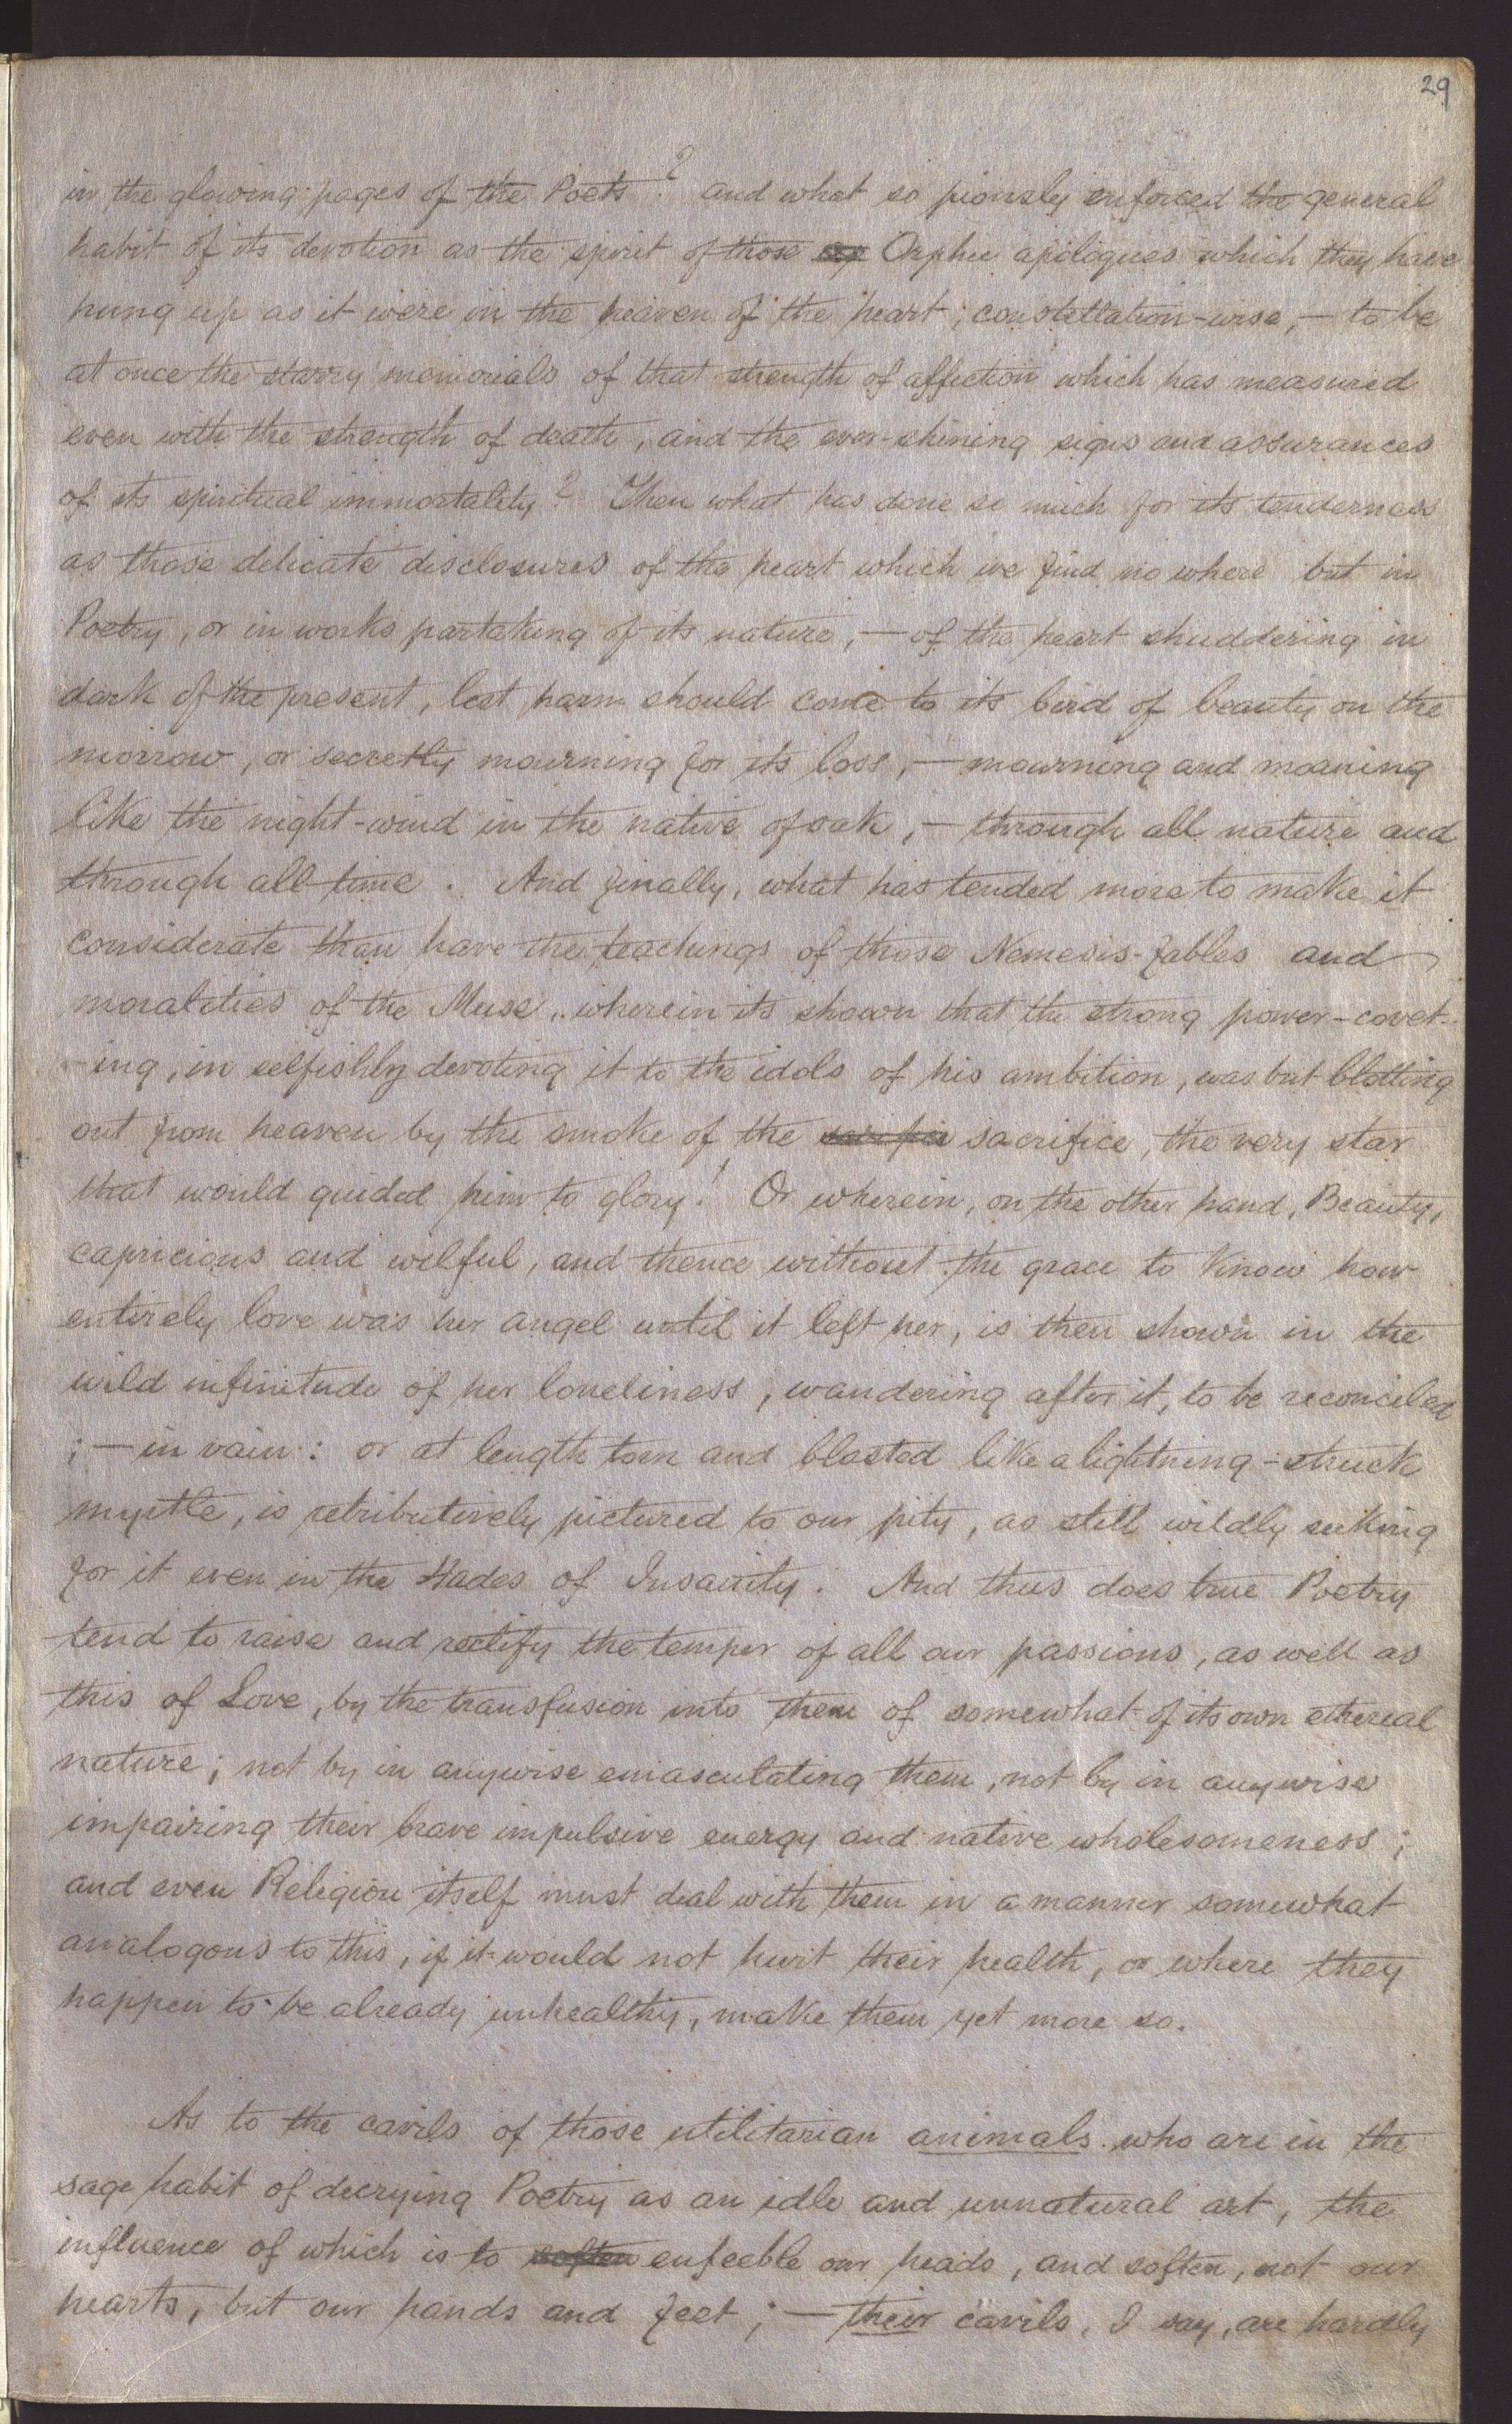 29
in the glowing pages of the Poets? and what so piously enforced the general
habit of its devotion as the spirit of those Orphic apologues which they have
hung up as it were in the heaven of the heart; constellation-wise, — to be
at once the starry memorials of that strength of affection which has measured
even with the strength of death, and the ever-shining signs and assurances
of its spiritual immortality? Then what has done so much for its tenderness
as those delicate disclosures of the heart which we find no where but in
Poetry, or in works partaking of its nature, — of the heart shuddering in
dark of the present, lest harm should come to its bird of beauty on the
morrow, or secretly mourning for its loss, — mourning and moaning
like the night-wind in the native of oak, — through all nature and
through all time. And finally, what has tended more to make it
considerate than have the teachings of those Nemesis-fables and
moralities of the Muse, wherein its shown that the strong power-covet-
-ing, in selfishly devoting it to the idols of his ambition, was but blotting
out from heaven by the smoke of the sacrifice, the very star
that would guided him to glory! Or wherein, on the other hand, Beauty,
capricious and wilful, and thence without the grace to know how
entirely love was her angel until it left her, is then shown in the
wild infinitude of her loneliness, wandering after it, to be reconciled
; — in vain: or at length torn and blasted like a lightning-struck
myrtle, is retributively pictured to our pity, as still wildly seeking
for it even in the Hades of Insanity. And thus does true Poetry
tend to raise and rectify the temper of all our passions, as well as
this of Love, by the transfusion into them of somewhat of its own ethereal
nature; not by in anywise emasculating them, not by in anywise
impairing their brave impulsive energy and native wholesomeness;
and even Religion itself must deal with them in a manner somewhat
analogous to this, if it would not hurt their health, or where they
happen to be already unhealthy, make them yet more so.
As to the cavils of those utilitarian animals who are in the
sage habit of decrying Poetry as an idle and unnatural art, the
influence of which is to soften enfeeble our heads, and soften, not our
hearts, but our hands and feet; — their cavils, I say, are hardly